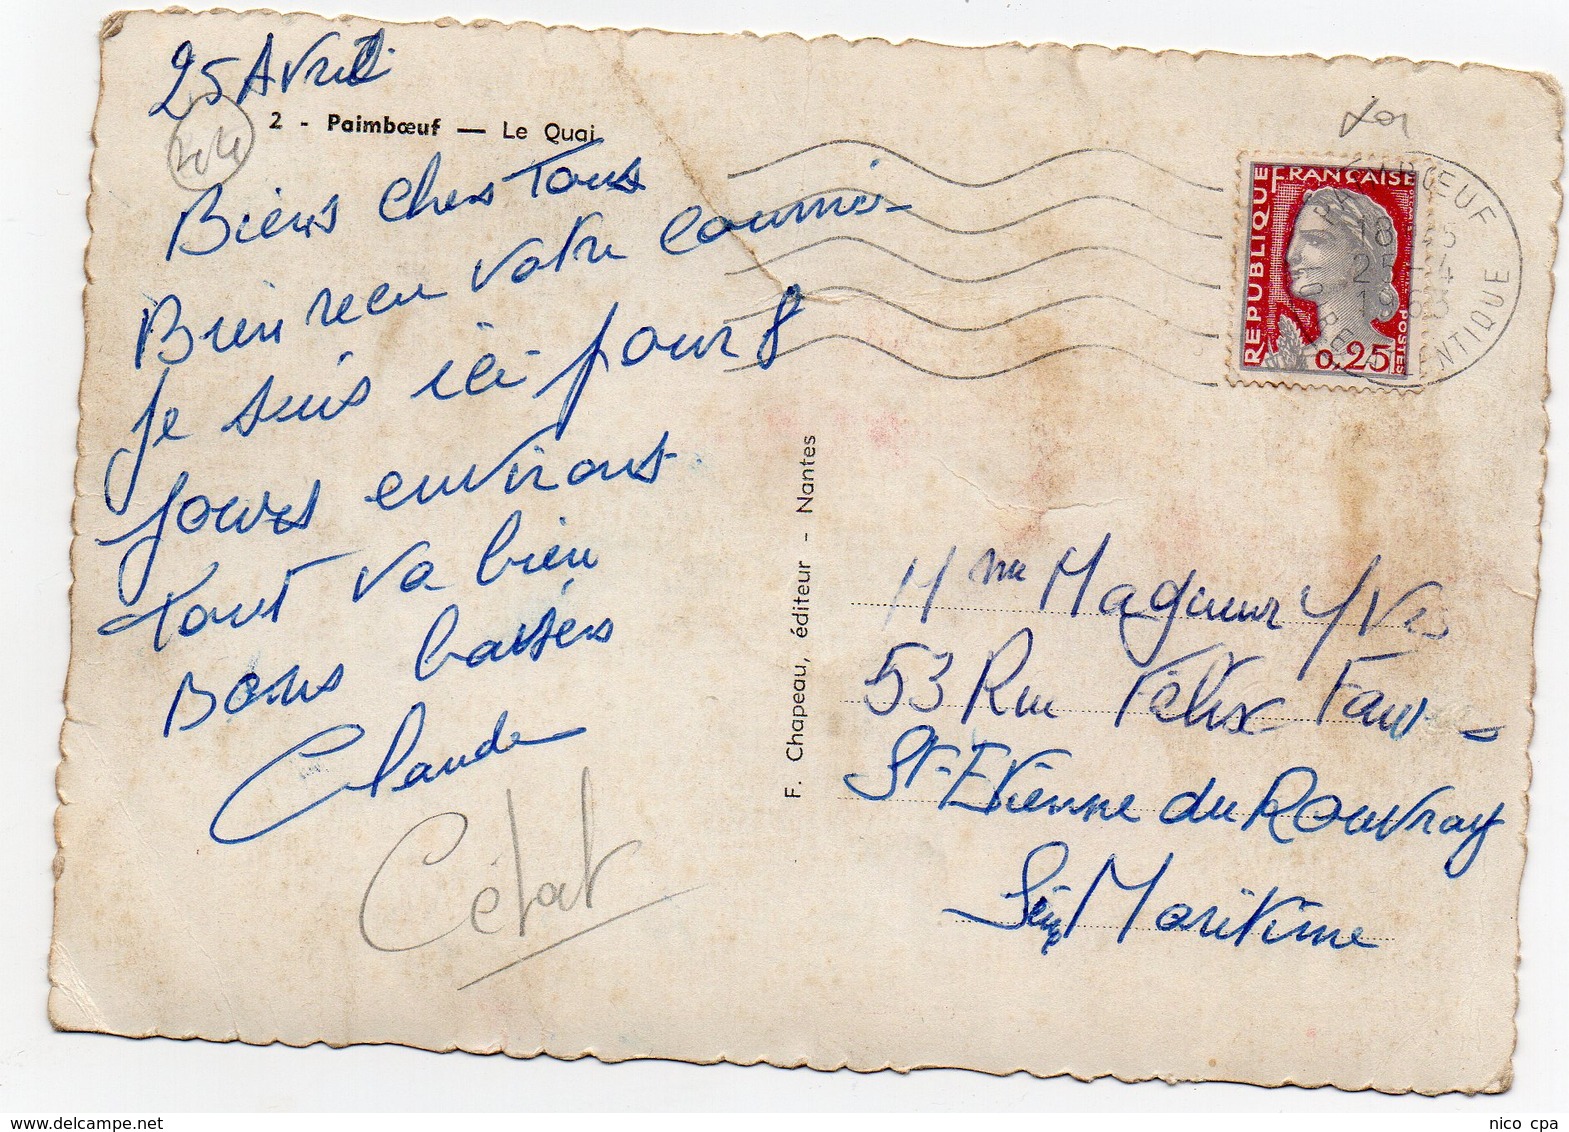 25 Avril
44
2 - Paimbœuf — Le Quai
Biens chers Tous
Bien recu votre courrier
Je suis ici pour 8
jours environs
tout va bien
Bons baisers
Claude
Cétat
F. Chapeau, éditeur - Nantes
REPUBLIQUE FRANÇAISE
POSTES
0,25
PAIMBŒUF
18 45
25-4
1963
LOIRE ATLANTIQUE
Mme Magueur Yves
53 Rue Félix Faure
St-Etienne du Rouvray
Seine Maritime
www.delcampe.net
nico cpa